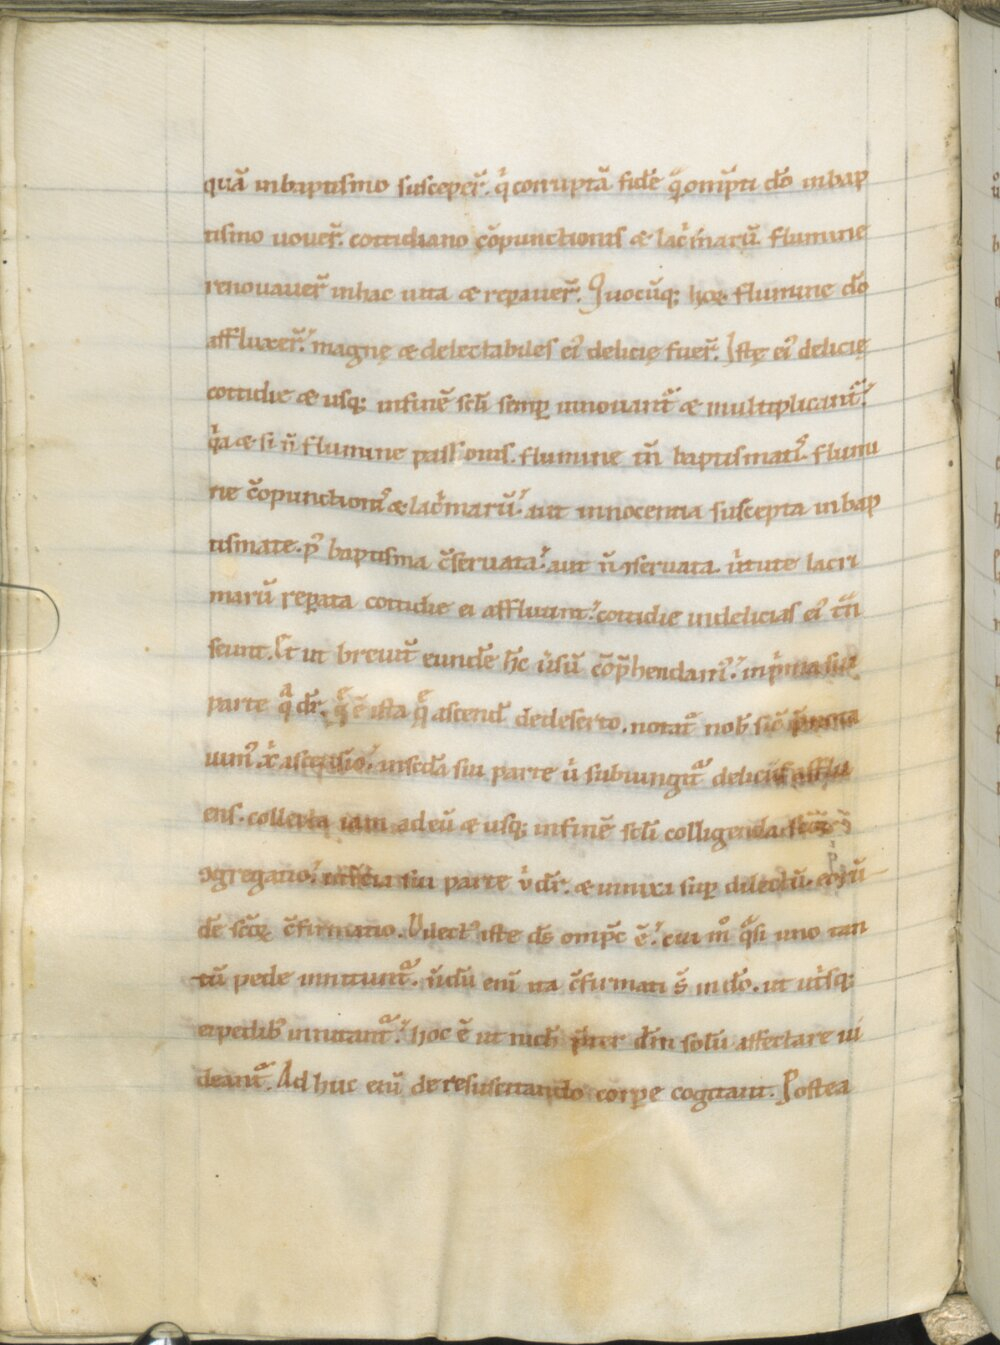 quā inbaptismo susceper̄. q̇ corruptā fidē q̄ omp̄ti dō inbap
tismo uouer̄. cottidiano cōpunctionis & lac̓marū flumine
renouauer̄ inhac uita & repauer̄. Quocūq; hoꝝ flumine dō
affluxer̄. magnę & delectabiles eī delicię fuer̄. Istę eī delicię
cottidie & usq; infinē scłi semp̄ innouant̄ & multiplicant̄.
q̇a & si n̄ flumine passionis. flumine tn̄ baptismatis. flumi
ne c̄opunctionis & lac̓marū. aut innocentia suscepta inbap
tismate. p̄ baptisma c̄seruata. aut n̄ ɔseruata. u̓tute lacri
marū repata cottidie ei affluunt. cottidie indelicias eī tn̄
seunt. Et ut breuit̄ eundē hc̄ u̓sū cōp̄hendam̄. inp̓ma sui
parte q̄ dr̄. q̄ ē ista q̄ ascend̄ dedeserto. notat̄ nob̄ sic̄
uim̄ x̄ ascensio. inscd̄a sui parte ū subiungit̄ deliciis afflu
ens. collecta iam adeū & usq; infinē scłi colligenda scōꝝ
ɔgregatio. intertia sui parte ū dr̄. & innixa sup dilectū. eorū
dē scōꝝ c̄firmatio. Dilect̄ iste ds̄ omp̄c ē. cui m̊ q̄si uno tan
tū pede innitunt̄. n̄dū enī ita c̄firmati s̄ indō. ut ut̓sq;
ei pedib; innitant̄. hoc ē ut nich̄ p̄ter dm̄ solū affectare ui
deant̄. Adhuc enī de resuscitando corpe cogitant. Postea